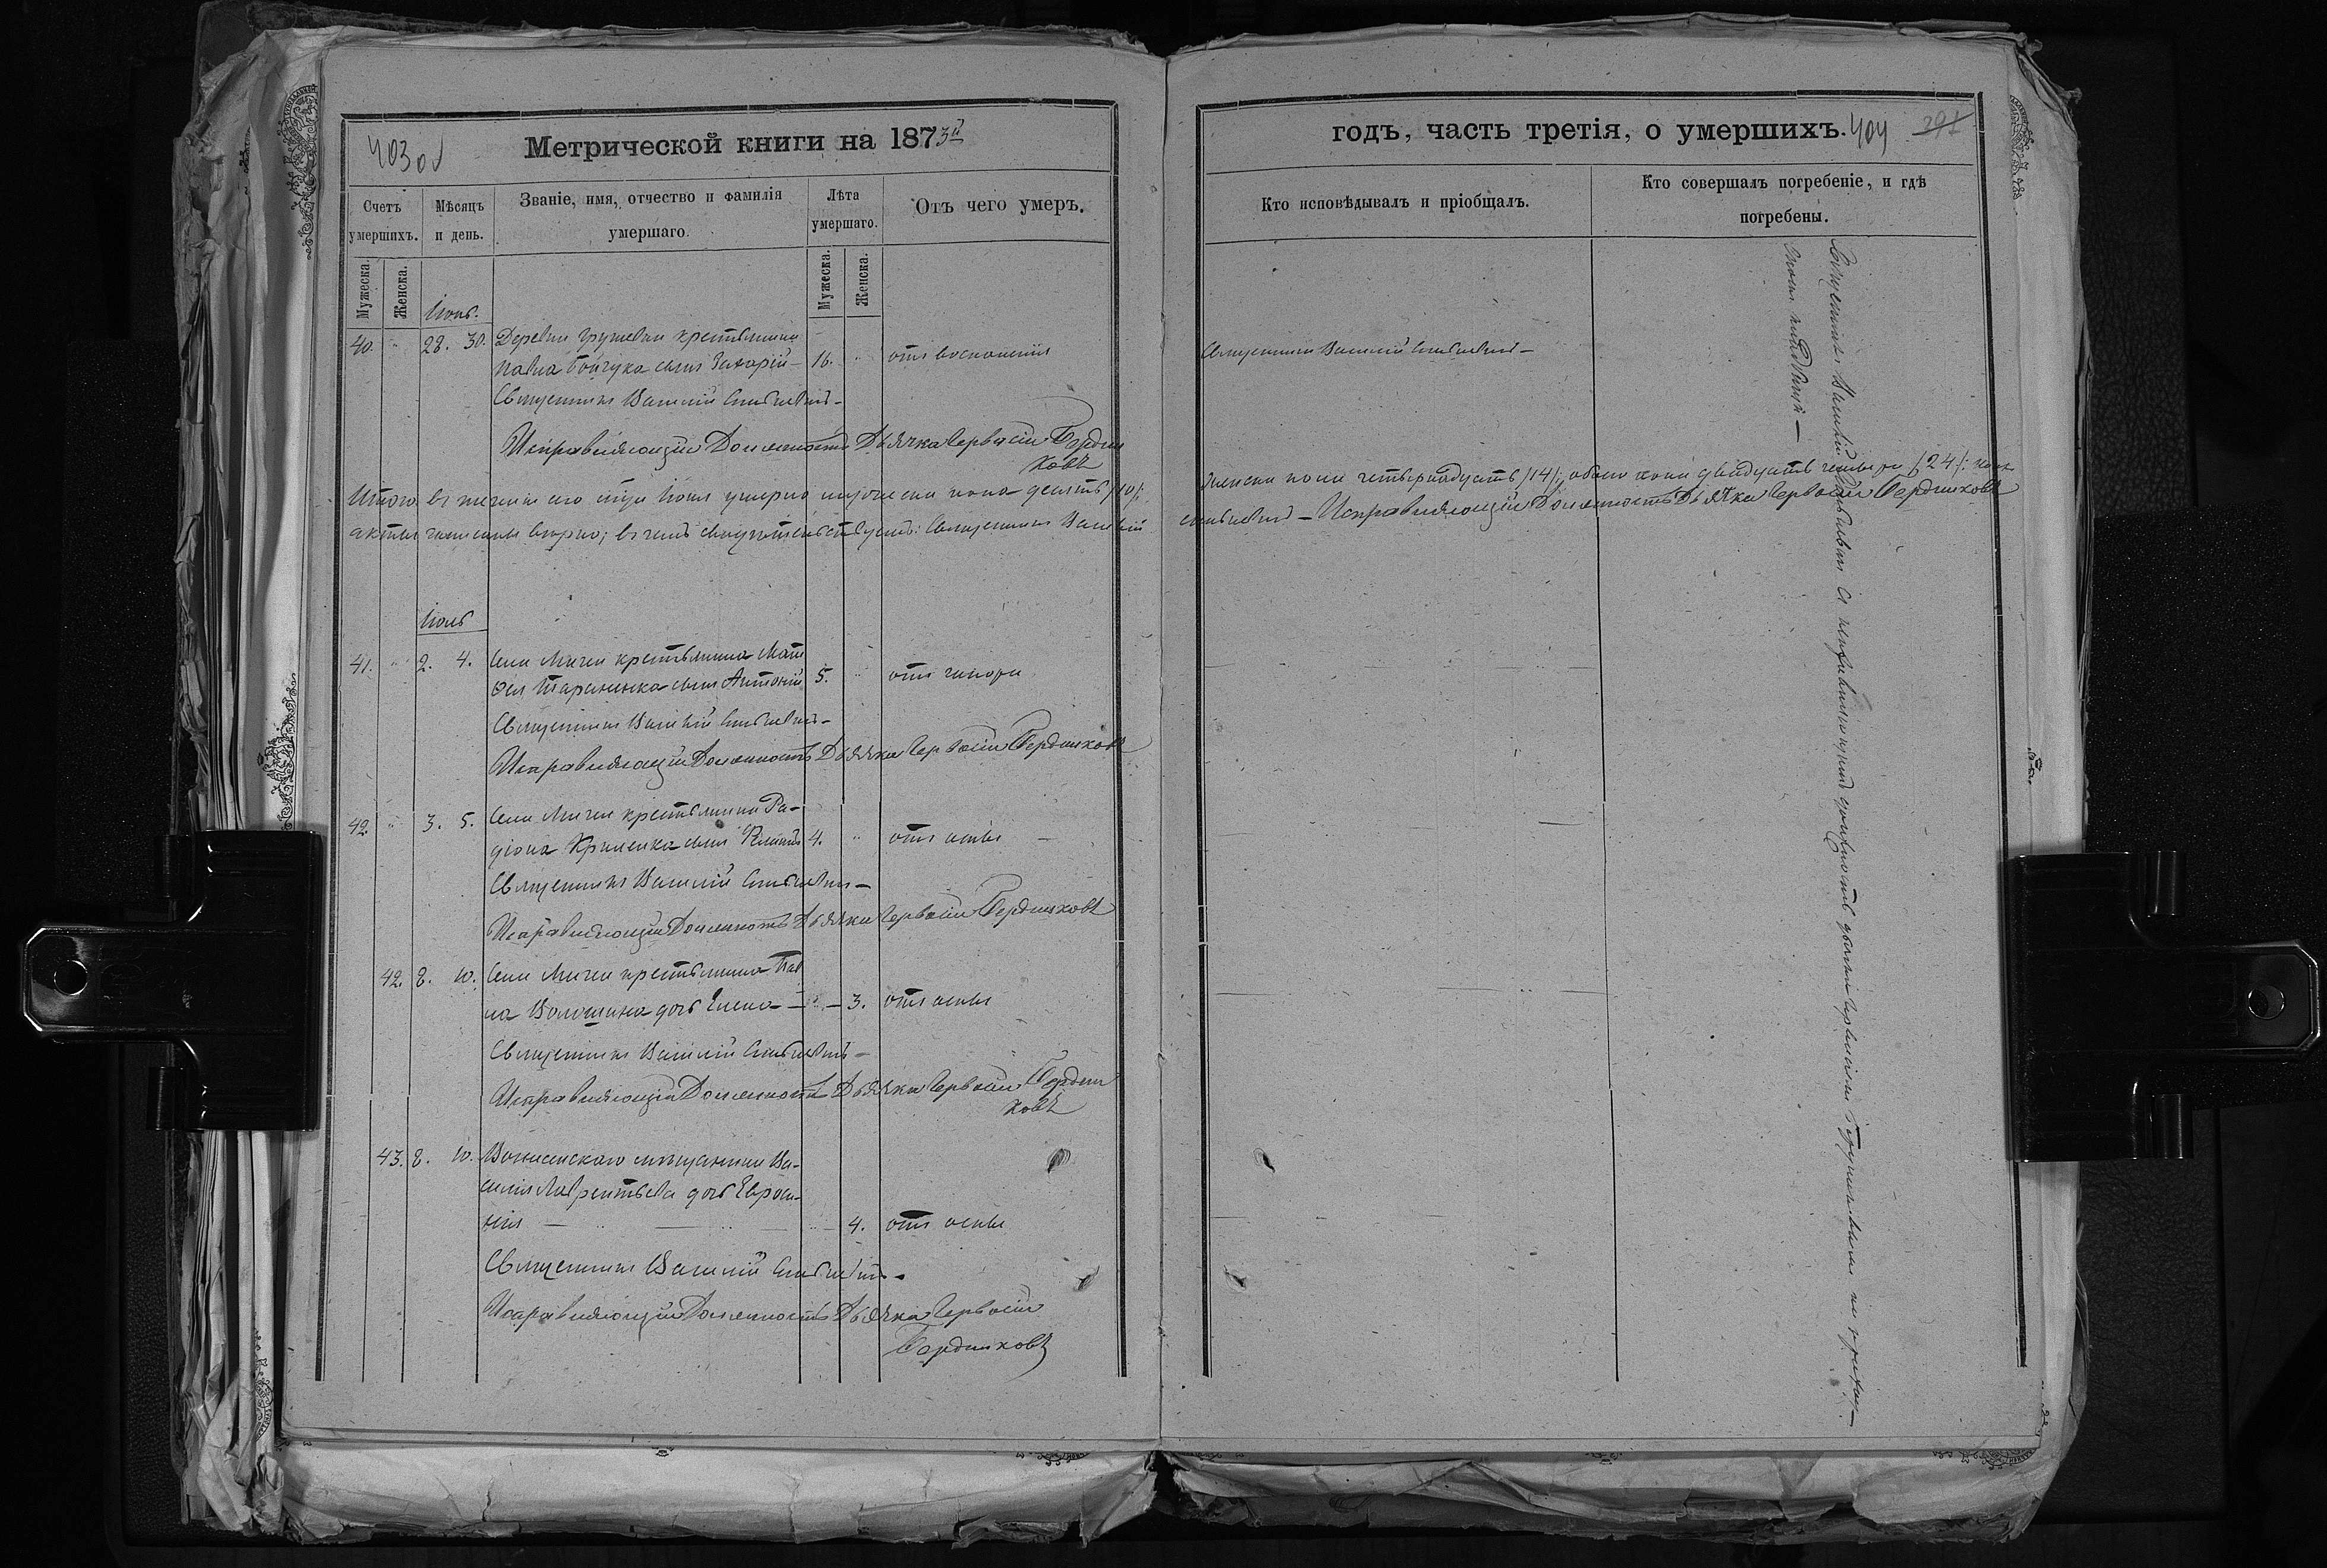 403 об
Метрической книги на 1873й
годъ, часть третія, о умершихъ.
404 391
Счетъ умершихъ.
Мѣсяцъ и день.
Званіе, имя, отчество и фамилія умершаго.
Лѣта умершаго.
Отъ чего умеръ.
Кто исповѣдывалъ и пріобщалъ.
Кто совершалъ погребеніе, и гдѣ погребены.
Мужеска.
Женска.
Мужеска.
Женска.
Іюнь.
40. " 28. 30. Деревни Грушевки крестьянина
Павла Бойчука сынъ Захарій – 16. " отъ воспаленія
Священникъ Василій –
Священникъ Василій –
Исправляющій Должность Дьячка Гервасій Бердни
ковъ
Итого въ теченіи сего мѣсяца Іюня умерло мужеска пола десять /10/;
женска пола четырнадцать /14/; обоего пола двадцать четыре /24/:
акты записаны вѣрно; въ чемъ свидѣтельствуемъ: Священникъ Василій
– Исправляющій Должность Дьячка Гервасій Бердниковъ
Іюль
41. " 2. 4. Села Мигеи крестьянина Мат
ѳея Тараненка сынъ Антоній 5. " отъ
Священникъ Василій –
Исправляющій Должность Дьячка Гервасій Бердниковъ
42. " 3. 5. Села Мигеи крестьянина Ра-
діона сынъ 4. " отъ оспы –
Священникъ Василій –
Исправляющій Должность Дьячка Гервасій Бердниковъ
42. 8. 10. Села Мигеи крестьянина Пав
ла Волошина дочь Елена – " – 3. отъ оспы
Священникъ Василій –
Исправляющій Должность Дьячка Гервасій Бердни
ковъ
43. 8. 10. Вознесенскаго мѣщанина Ва-
силія Лаврентьева дочь Евроси-
нія – " – " – 4. отъ оспы
Священникъ Василій –
Исправляющій Должность Дьячка Гервасій
Бердниковъ
Священникъ Василій съ исправляющимъ должность дьячка Гервасіемъ Бердниковымъ на приход-
скомъ кладбищѣ –